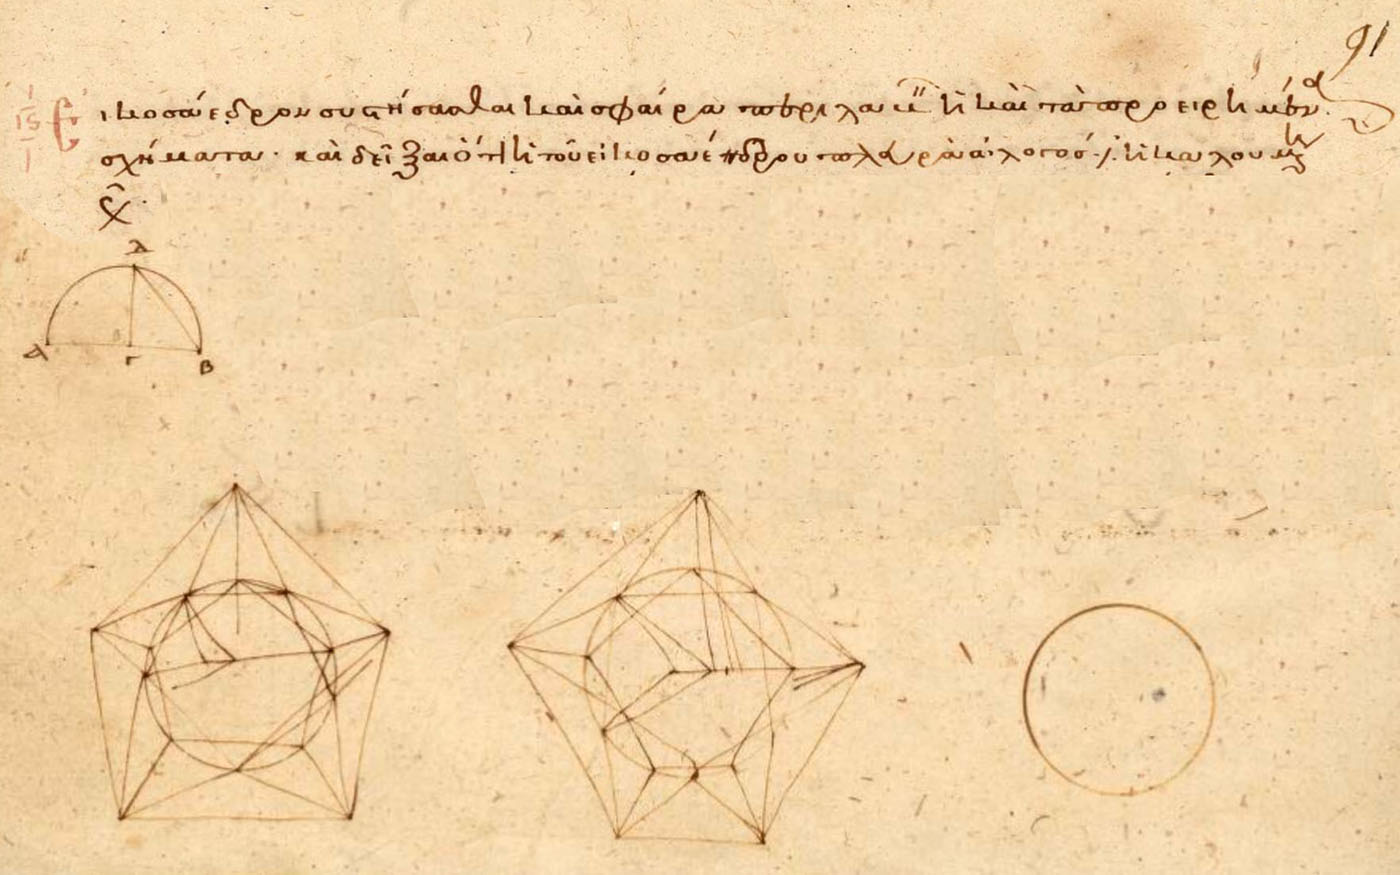 91
ις
Εἰκοσάεδρον συστήσασθαι καὶ σφαίρα περιλαβεῖν ἡ καὶ τὰ προειρημένα
σχήματα· καὶ δεῖξαι ὅτι ἡ τοῦ εἰκοσαέδρου πλευρὰ ἄλογος ἡ καλουμένη
Δ
Α Γ Β